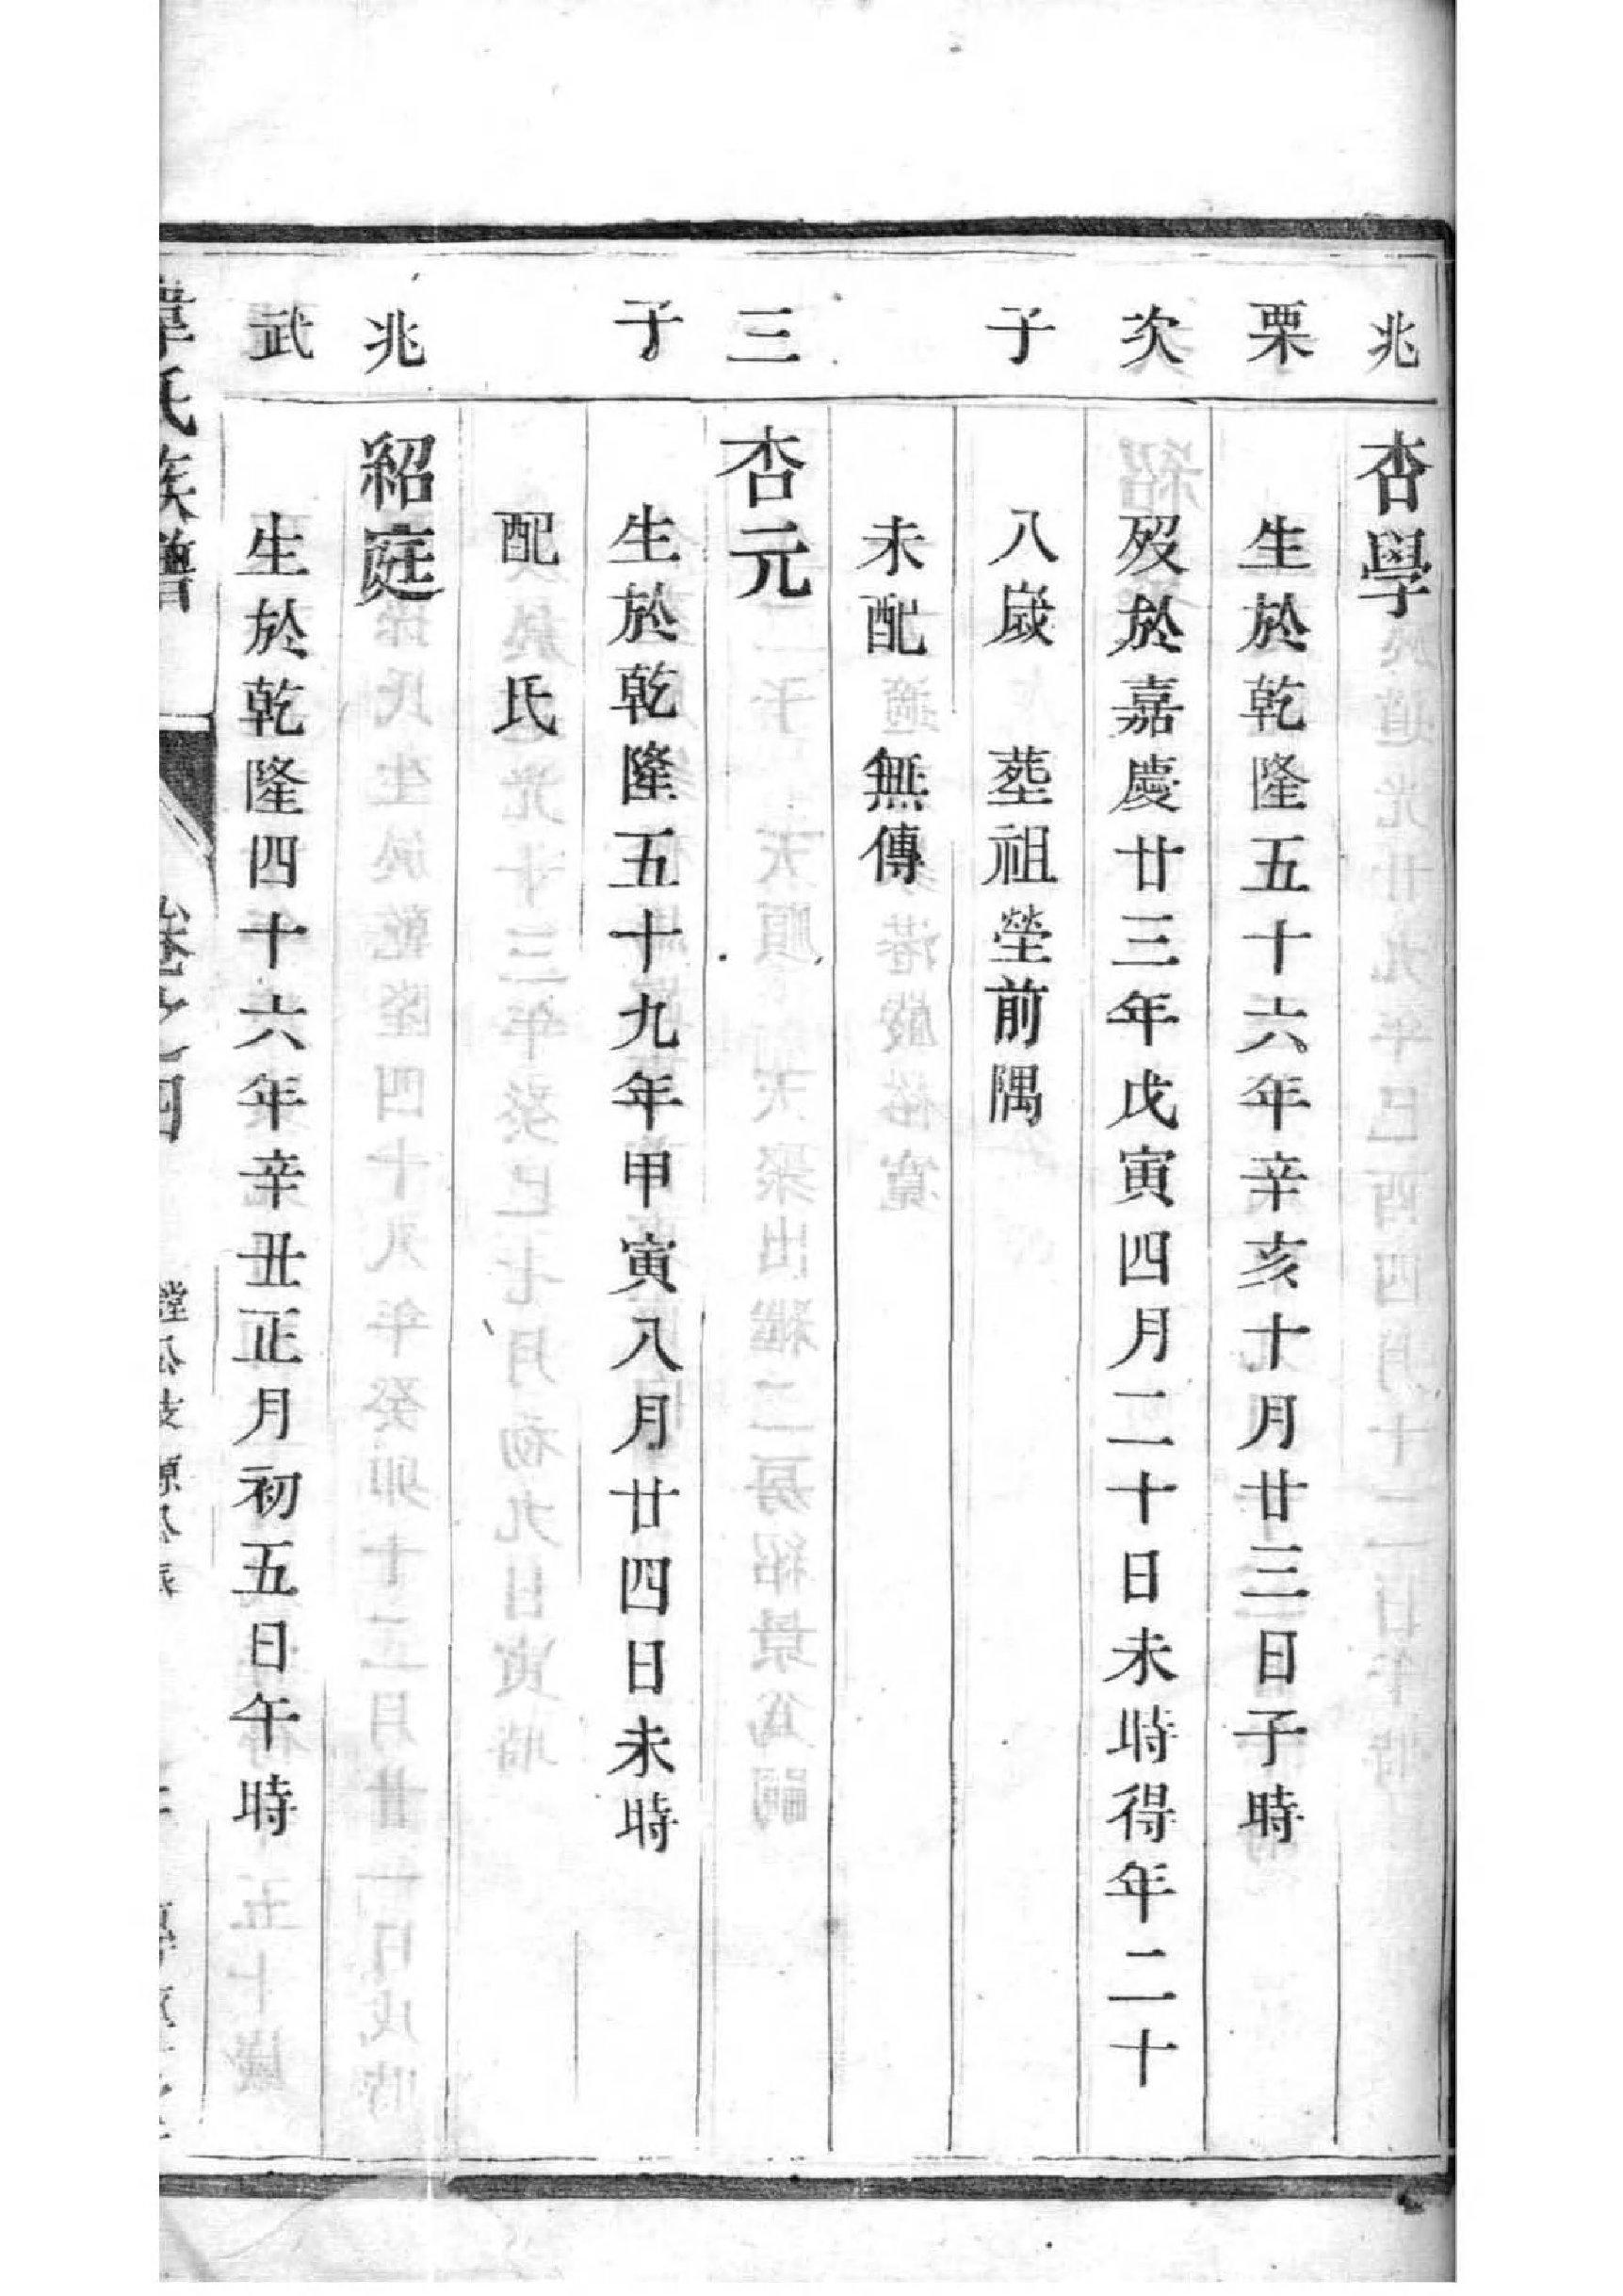 兆
杏學
栗
生於乾隆五十六年辛亥十月廿三日子時
次
歿於嘉慶廿三年戊寅四月二十日未時得年二十
子
八嵗 塟祖塋前隅
未配 無傳
三
杏元
子
生於乾隆五十九年甲寅八月廿四日未時
配 氏
兆
紹庭
武
生於乾隆四十六年辛丑正月初五日午時
韋氏族譜 卷之四